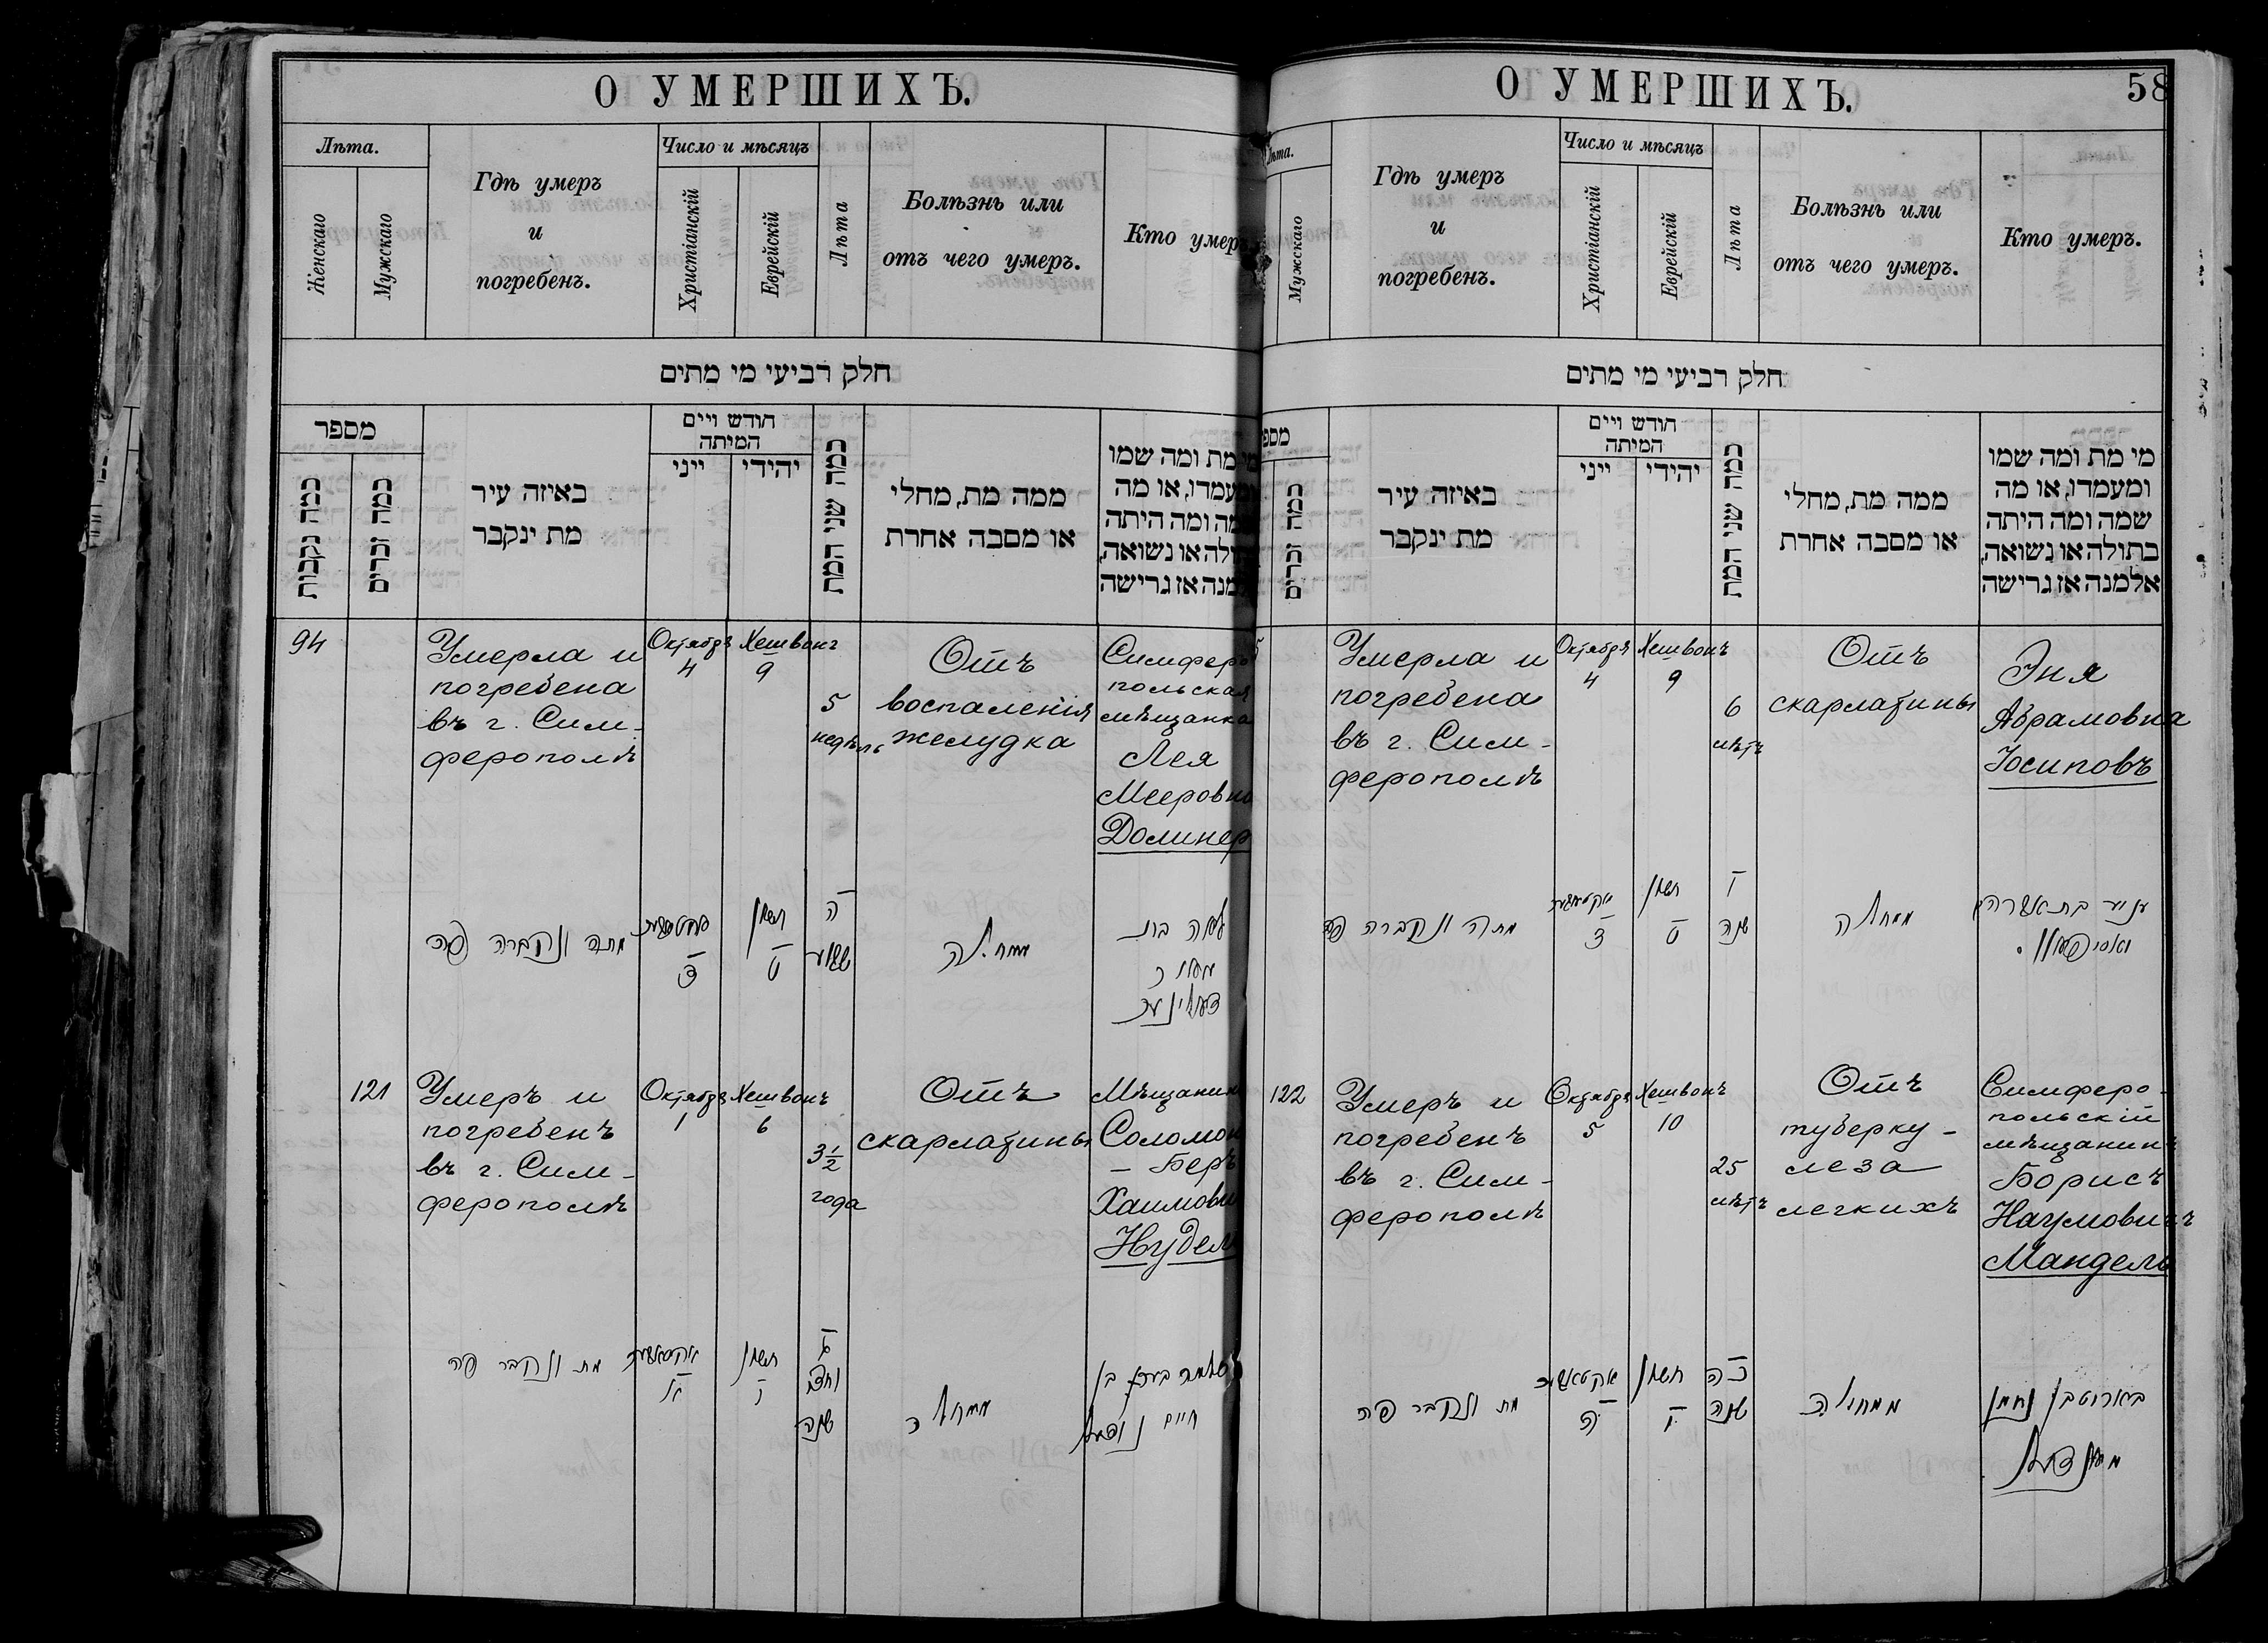 О УМЕРШИХЪ.
Лѣта.
Женскаго
Мужскаго
Гдѣ умеръ
и
погребенъ.
Число и мѣсяцъ
Христіанскій
Еврейскій
Лѣта
Болѣзнь или
отъ чего умеръ.
Кто умер
חלק רביעי מי מתים
מספר
כמה נקבות
כמה זכרים
באיזה עיר
מת ינקבר
חודש ויים
המיתה
ייני
יהידי
כמה שני המת
ממה מת, מחלי
או מסבה אחרת
מת ומה שמו
עמדו, או מה
מה ומה היתה
ולה או נשואה,
מנה אז גרישה
94
Умерла и
погребена
въ г. Сим-
ферополѣ
Октября
4
Хешвонъ
9
5
недѣль
Отъ
воспаленія
желудка
Симферо
польская
мѣщанка
Лея
Мееровна
Долинер
מתה ונקברה פה
חשון
ט
ה
מחלה
121
Умеръ и
погребенъ
въ г. Сим-
ферополѣ
Октября
1
Хешвонъ
6
3½
года
Отъ
скарлатины
Мѣщанин
Соломон
- Беръ
Хаимови
Нудел
מת ונקבר פה
חשון
ו
שנה
חיים
О УМЕРШИХЪ.
58
ѣта.
Мужскаго
Гдѣ умеръ
и
погребенъ.
Число и мѣсяцъ
Христіанскій
Еврейскій
Лѣта
Болѣзнь или
отъ чего умеръ.
Кто умеръ.
חלק רביעי מי מתים
מספ
כמה זכרים
באיזה עיר
מת ינקבר
חודש ויים
המיתה
ייני
יהידי
כמה שני המת
ממה מת, מחלי
או מסבה אחרת
מי מת ומה שמו
ומעמדו, או מה
שמה ומה היתה
בתולה או נשואה,
אלמנה אז גרישה
5
Умерла и
погребена
въ г. Сим-
ферополѣ
Октября
4
Хешвонъ
9
6
лѣтъ
Отъ
скарлатины
Эня
Абрамовна
Іосиповъ
מתה ונקברה פה
חשון
ט
ו
שנה
ממחלה
122
Умеръ и
погребенъ
въ г. Сим-
ферополѣ
Октября
5
Хешвонъ
10
25
лѣтъ
Отъ
туберку-
леза
легкихъ
Симферо-
польскій
мѣщанинъ
Борисъ
Наумовичъ
Мандель
מת ונקבר פה
ה
חשון
י
כה
שנה
ממחלה
בן נחמן